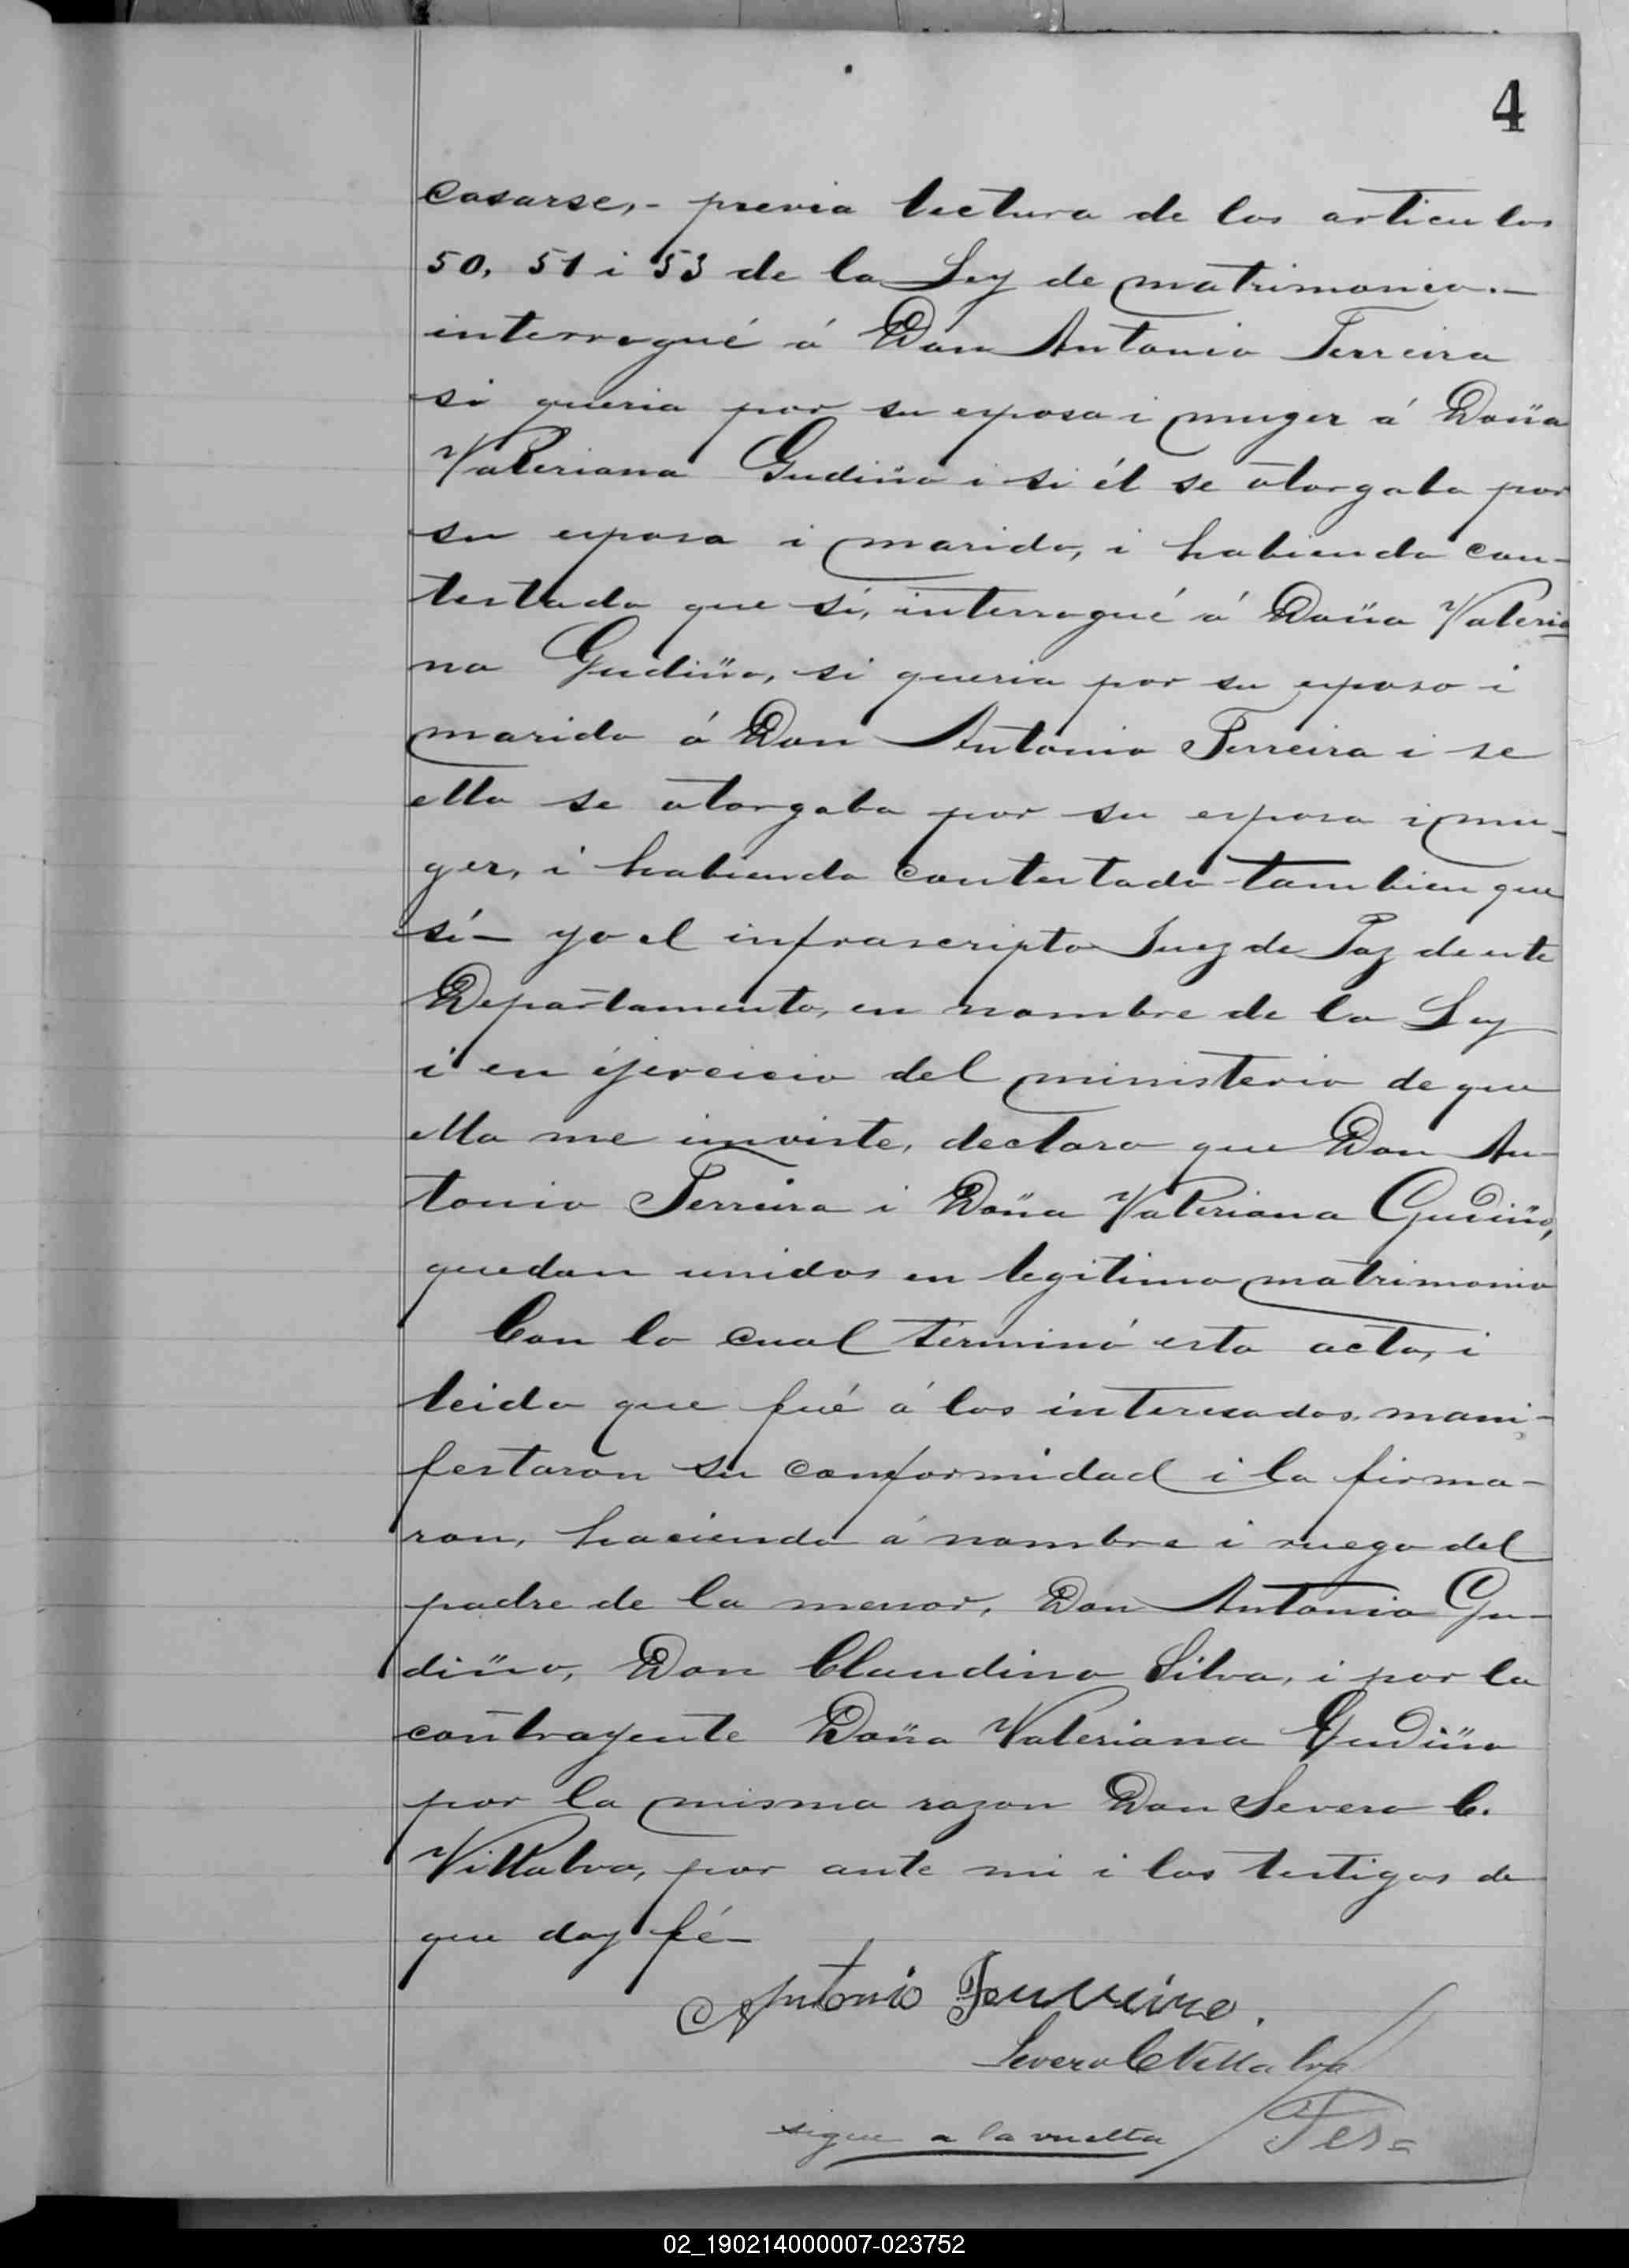 4
casarse,- previa lectura de los articulos
50, 51 i 53 de la Ley de matrimonio.-
interrogué á Don Antonio Ferreira
si queria por su esposa i muger á Doña
Valeriana Gudiño i si él se otorgaba por
su esposo i marido, i habiendo con-
testado que sí, interrogué á Doña Valeria
na Gudiño, si queria por su esposo i
marido á Don Antonio Ferreira i se
ella se otorgaba por su esposa i mu-
ger, i habiendo contestado tambien que
sí- yo el infrascripto Juez de Paz de este
Departamento, en nombre de la Ley
i en ejercicio del ministerio de que
ella me inviste, declaro que Don An-
tonio Ferreira i Doña Valeriana Gudiño,
quedan unidos en legitimo matrimonio
Con lo cual términó esta acta, i
leida que fué á los interesados, mani-
festaron su conformidad i la firma-
ron, haciendo á nombre i ruego del
padre de la menor, Don Antonio Gu-
diño, Don Claudino Silva, i por la
contrayente Doña Valeriana Gudiño
por la misma razon Don Severo C.
Villalva, por ante mi i los testigos de
que doy fé-
Antonio Ferreira.
Severo C Villalva
sigue a la vuelta
02_190214000007-023752